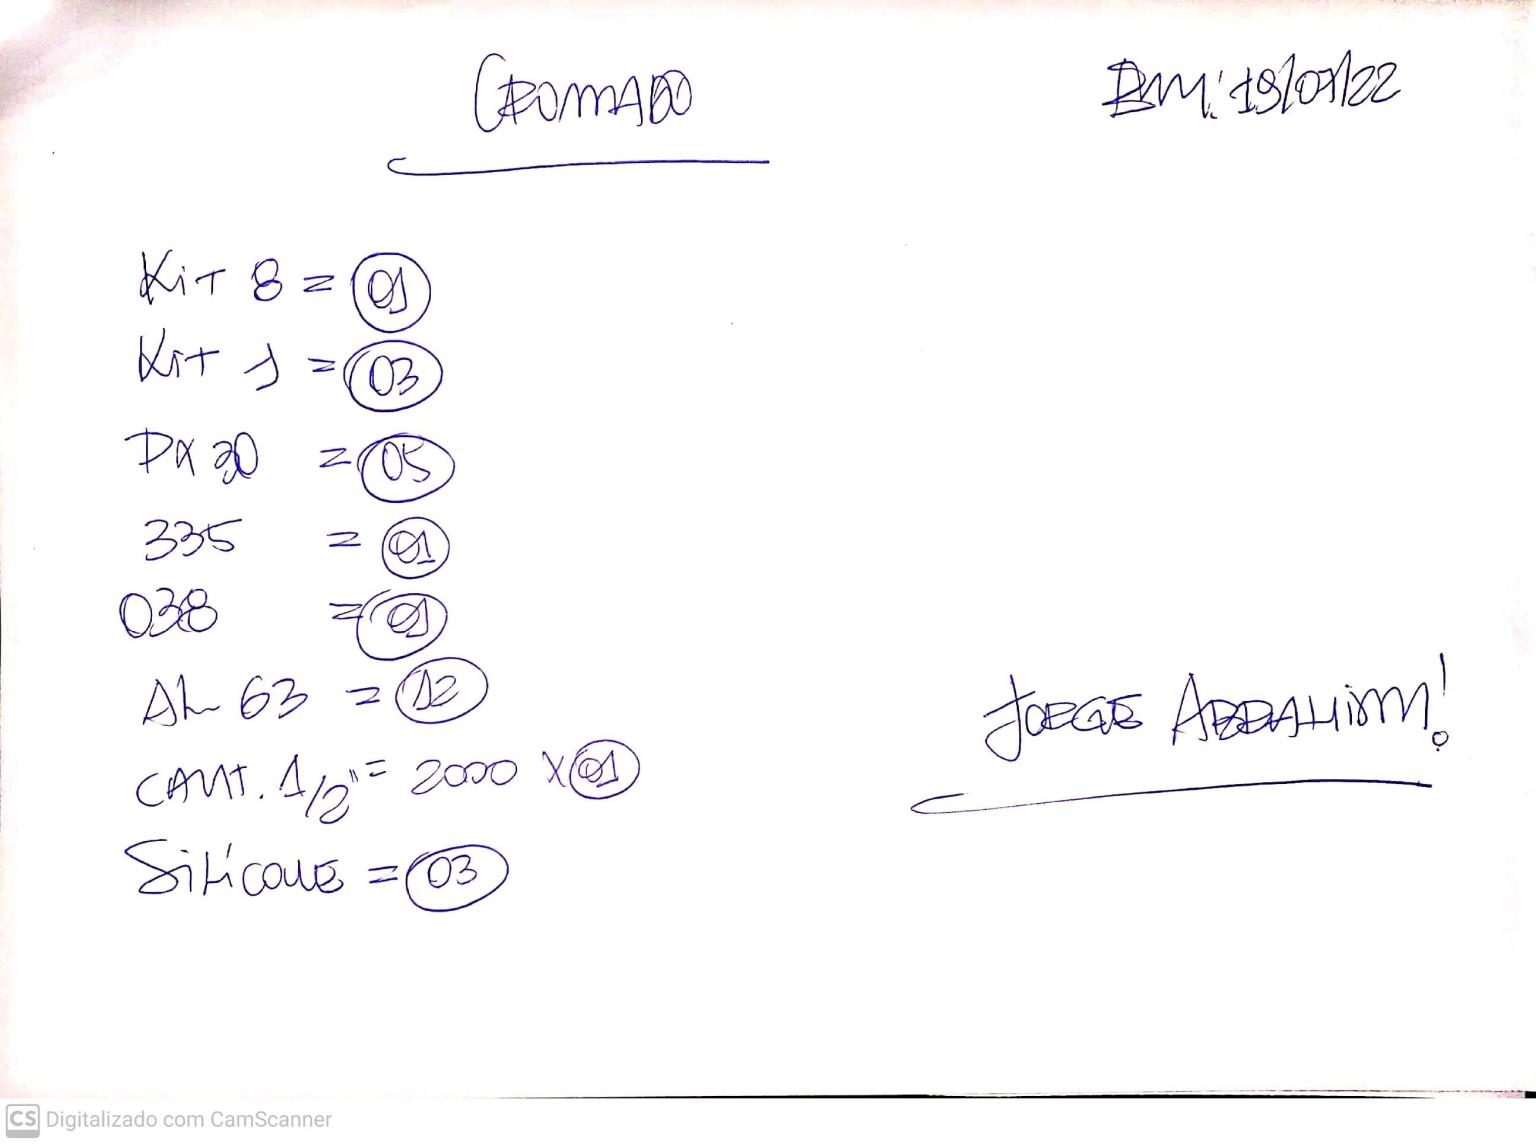 CROMADO
Em: 19/07/22
Kit 8 = 01
Kit 1 = 03
PX 30 = 05
335 = 01
038 = 01
AL 63 = 12
CANT. 1/2" = 2000 X 01
SiLiCONE = 03
JORGE ABRAHiM!
CS Digitalizado com CamScanner